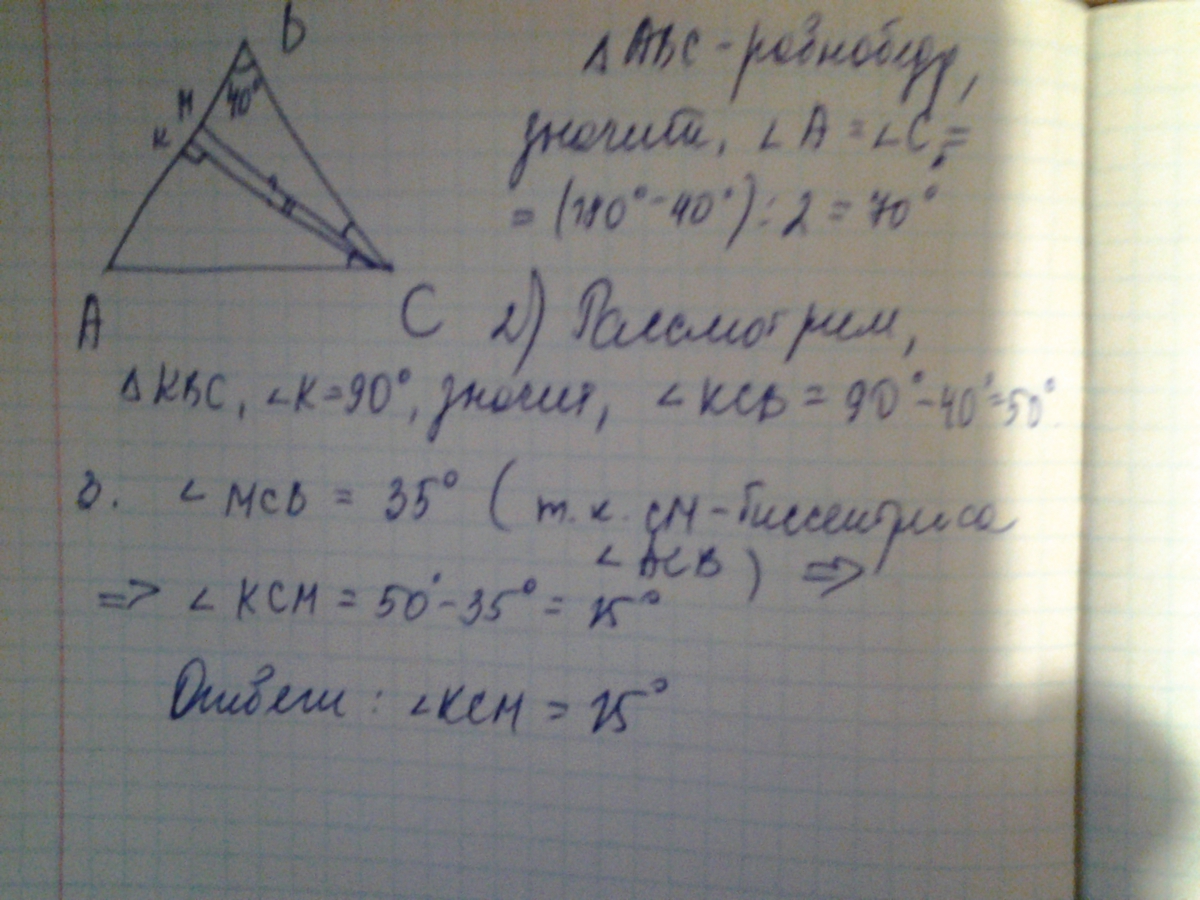 B
M
K
40°
A
C
Δ ABC - равнобедр,
значит, ∠A = ∠C =
= (180° - 40°) : 2 = 70°
2) Рассмотрим,
Δ KBC, ∠K = 90°, значит, ∠KCB = 90° - 40° = 50°.
3. ∠MCB = 35° (т.к. CM - биссектриса
∠ACB) =>
=> ∠KCM = 50° - 35° = 15°
Ответ: ∠KCM = 15°